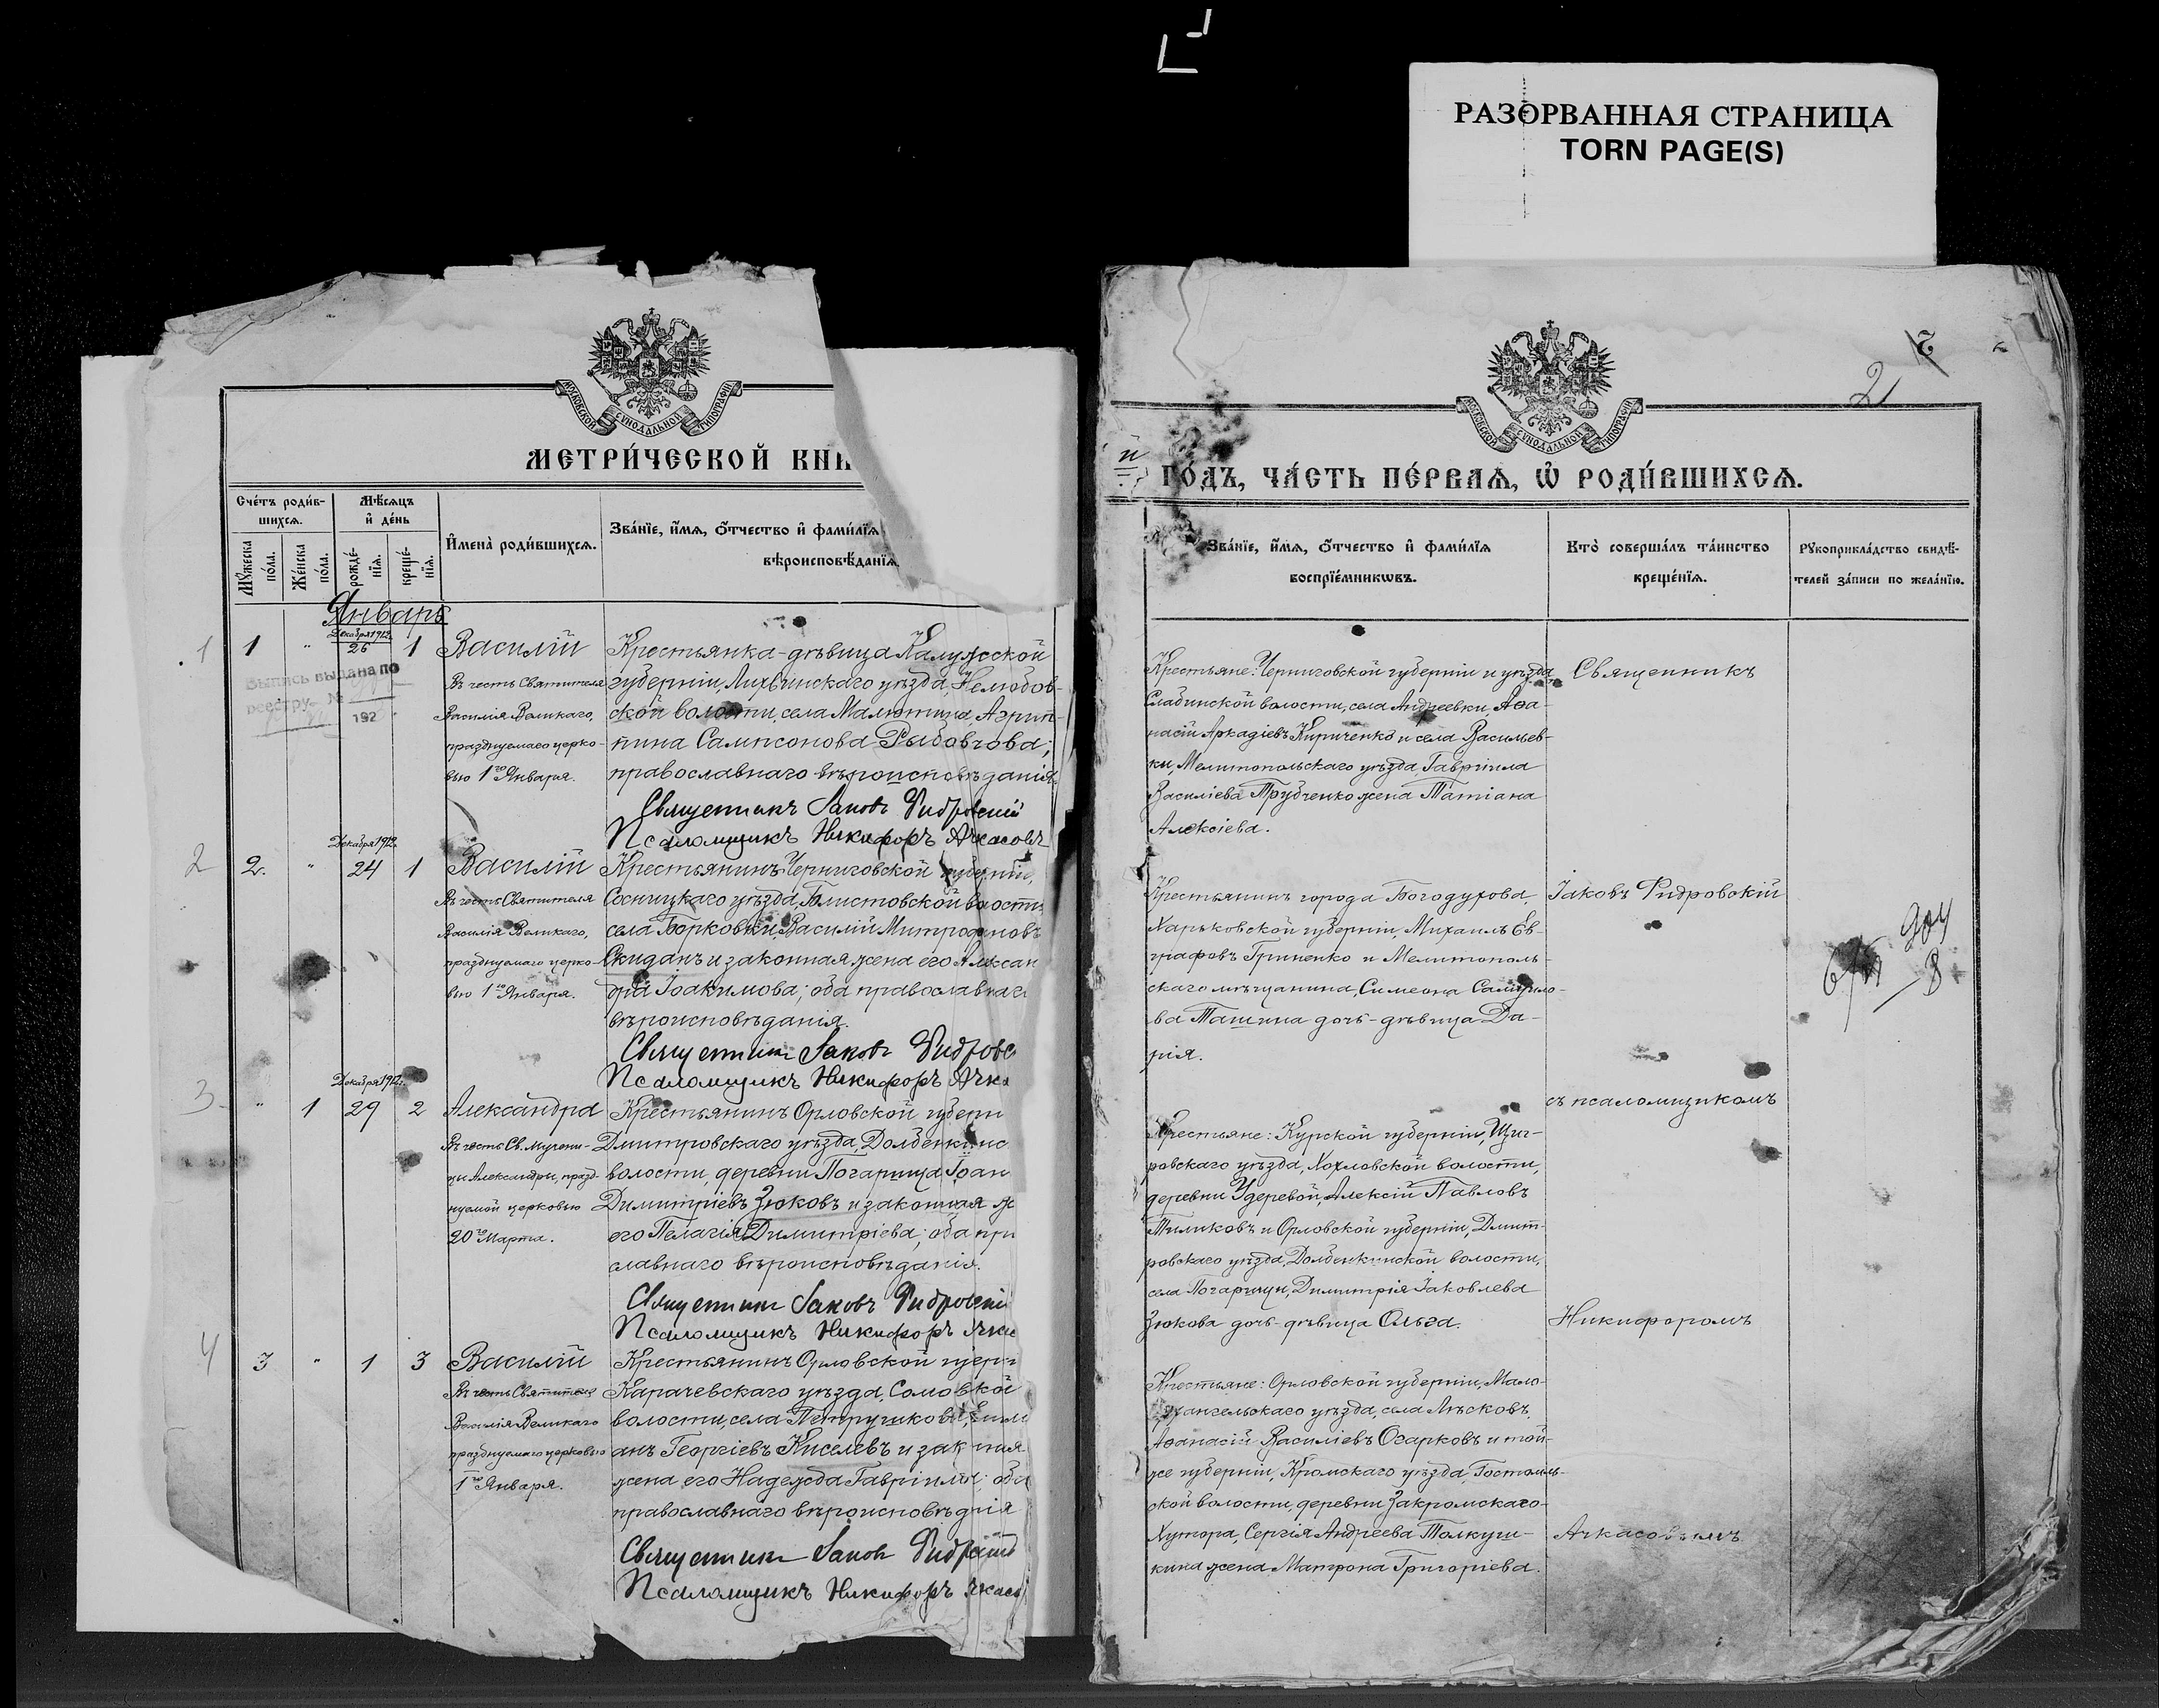 РАЗОРВАННАЯ СТРАНИЦА
TORN PAGE(S)
21
МОСКОВСКОЙ СѴНОДАЛЬНОЙ ТИПОГРАФІИ
МЕТРИ́ЧЕСКОЙ КНИ
Сче́тъ роди́в-
шихсѧ.
Мѣ́сѧцъ
и҆ де́нь
И҆мена̀ роди́вшихсѧ.
Зва́нїе, и҆́мѧ, ѻ҆́тчество и҆ фами́лїѧ
вѣроисповѣ́данїѧ,
Мꙋ́жеска
по́ла.
Же́нска
по́ла.
рожде́-
нїѧ.
креще́-
нїѧ.
Январь
1 1 " Декабря 1912 26 1 Василій
Въ честь Святителя
Василія Великаго,
празднуемаго церко-
вью 1го Января.
Выпись выдана по
реестру №
192
Крестьянка-дѣвица Калужской
губерніи, Лихвинскаго уѣзда, Нелюбов-
ской волости, села Малютина, Агрип-
пина Сампсонова Рыбовчова;
православнаго вѣроисповѣданія.
Священникъ Іаковъ Фидровскій
Псаломщикъ Никифоръ Ачкасовъ
2 2. " Декабря 1912. 24 1 Василій
Въ честь Святителя
Василія Великаго,
празднуемаго церко-
вью 1го Января.
Крестьянинъ Черниговской губерніи,
Сосницкаго уѣзда, Блистовской волости
села Борковки, Василій Митрофановъ
Скиданъ и законная жена его Алексан
дра Іоакимова; оба православнаго
вѣроисповѣданія.
Священникъ Іаковъ Фидровс
Псаломщикъ Никифоръ Ачка
3 " 1 Декабря 1912. 29 2 Александра
Въ честь Св. мучени-
цы Александры, празд-
нуемой церковью
20го Марта.
Крестьянинъ Орловской губерн
Дмитровскаго уѣзда, Долбенкинс
волости, деревни Погарища, Іоан
Димитріевъ Зюковъ и законная ж
его Пелагія Димитріева; оба пра
славнаго вѣроисповѣданія.
Священникъ Іаковъ Фидровскі
Псаломщикъ Никифоръ Ачкас
4 3 " 1 3 Василій
Въ честь Святителя
Василія Великаго
празднуемаго церковью
1го Января.
Крестьянинъ Орловской губерн
Карачевскаго уѣзда,
волости, села Петрушкова,
анъ Георгіевъ Киселевъ и законная
жена его Надежда Гавріилова; оба
православнаго вѣроисповѣданія
Священникъ Іаковъ Фидровскій
Псаломщикъ Никифоръ Ачкасо
МОСКОВСКОЙ СѴНОДАЛЬНОЙ ТИПОГРАФІИ
ГО́ДЪ, ЧА́СТЬ ПЕ́РВАѦ, Ѡ҆ РОДИ́ВШИХСѦ.
Зва́нїе, и҆́мѧ, ѻ҆́тчество и҆ фами́лїѧ
воспрїе́мникѡвъ.
Кто̀ соверша́лъ та́инство
креще́нїѧ.
Рꙋкоприкла́дство свидѣ́-
телей за́писи по жела́нїю.
Крестьяне: Черниговской губерніи и уѣзда,
Слабинской волости, села Андреевки, Аѳа-
насій Аркадіевъ Кириченко и села Васильев-
ки, Мелитопольскаго уѣзда, Гавріила
Василіева Трубченко жена Татіана
Алексіева.
Крестьянинъ города Богодухова,
Харьковской губерніи, Михаилъ Ев-
графовъ Гриненко и Мелитополь-
скаго мѣщанина, Симеона Самуило-
ва Ташина дочь-дѣвица Да-
рія.
Крестьяне: Курской губерніи, Щиг-
ровскаго уѣзда, Хохловской волости,
деревни Удеревой, Алексій Павловъ
Тиликовъ и Орловской губерніи, Дмит-
ровскаго уѣзда, Долбенкинской волости,
села Погарищи, Димитрія Іаковлева
Зюкова дочь-дѣвица Ольга.
Крестьяне: Орловской губерніи, Мало-
архангельскаго уѣзда, села Лѣсковъ,
Аѳанасій Василіевъ Огарковъ и той-
же губерніи, Кромскаго уѣзда, Гостомль-
ской волости, деревни Закромскаго-
Хутора, Сергія Андреева Толкуш-
кина жена Матрона Григоріева.
Священникъ
Іаковъ Фидровскій
съ псаломщикомъ
Никифоромъ
Ачкасовымъ